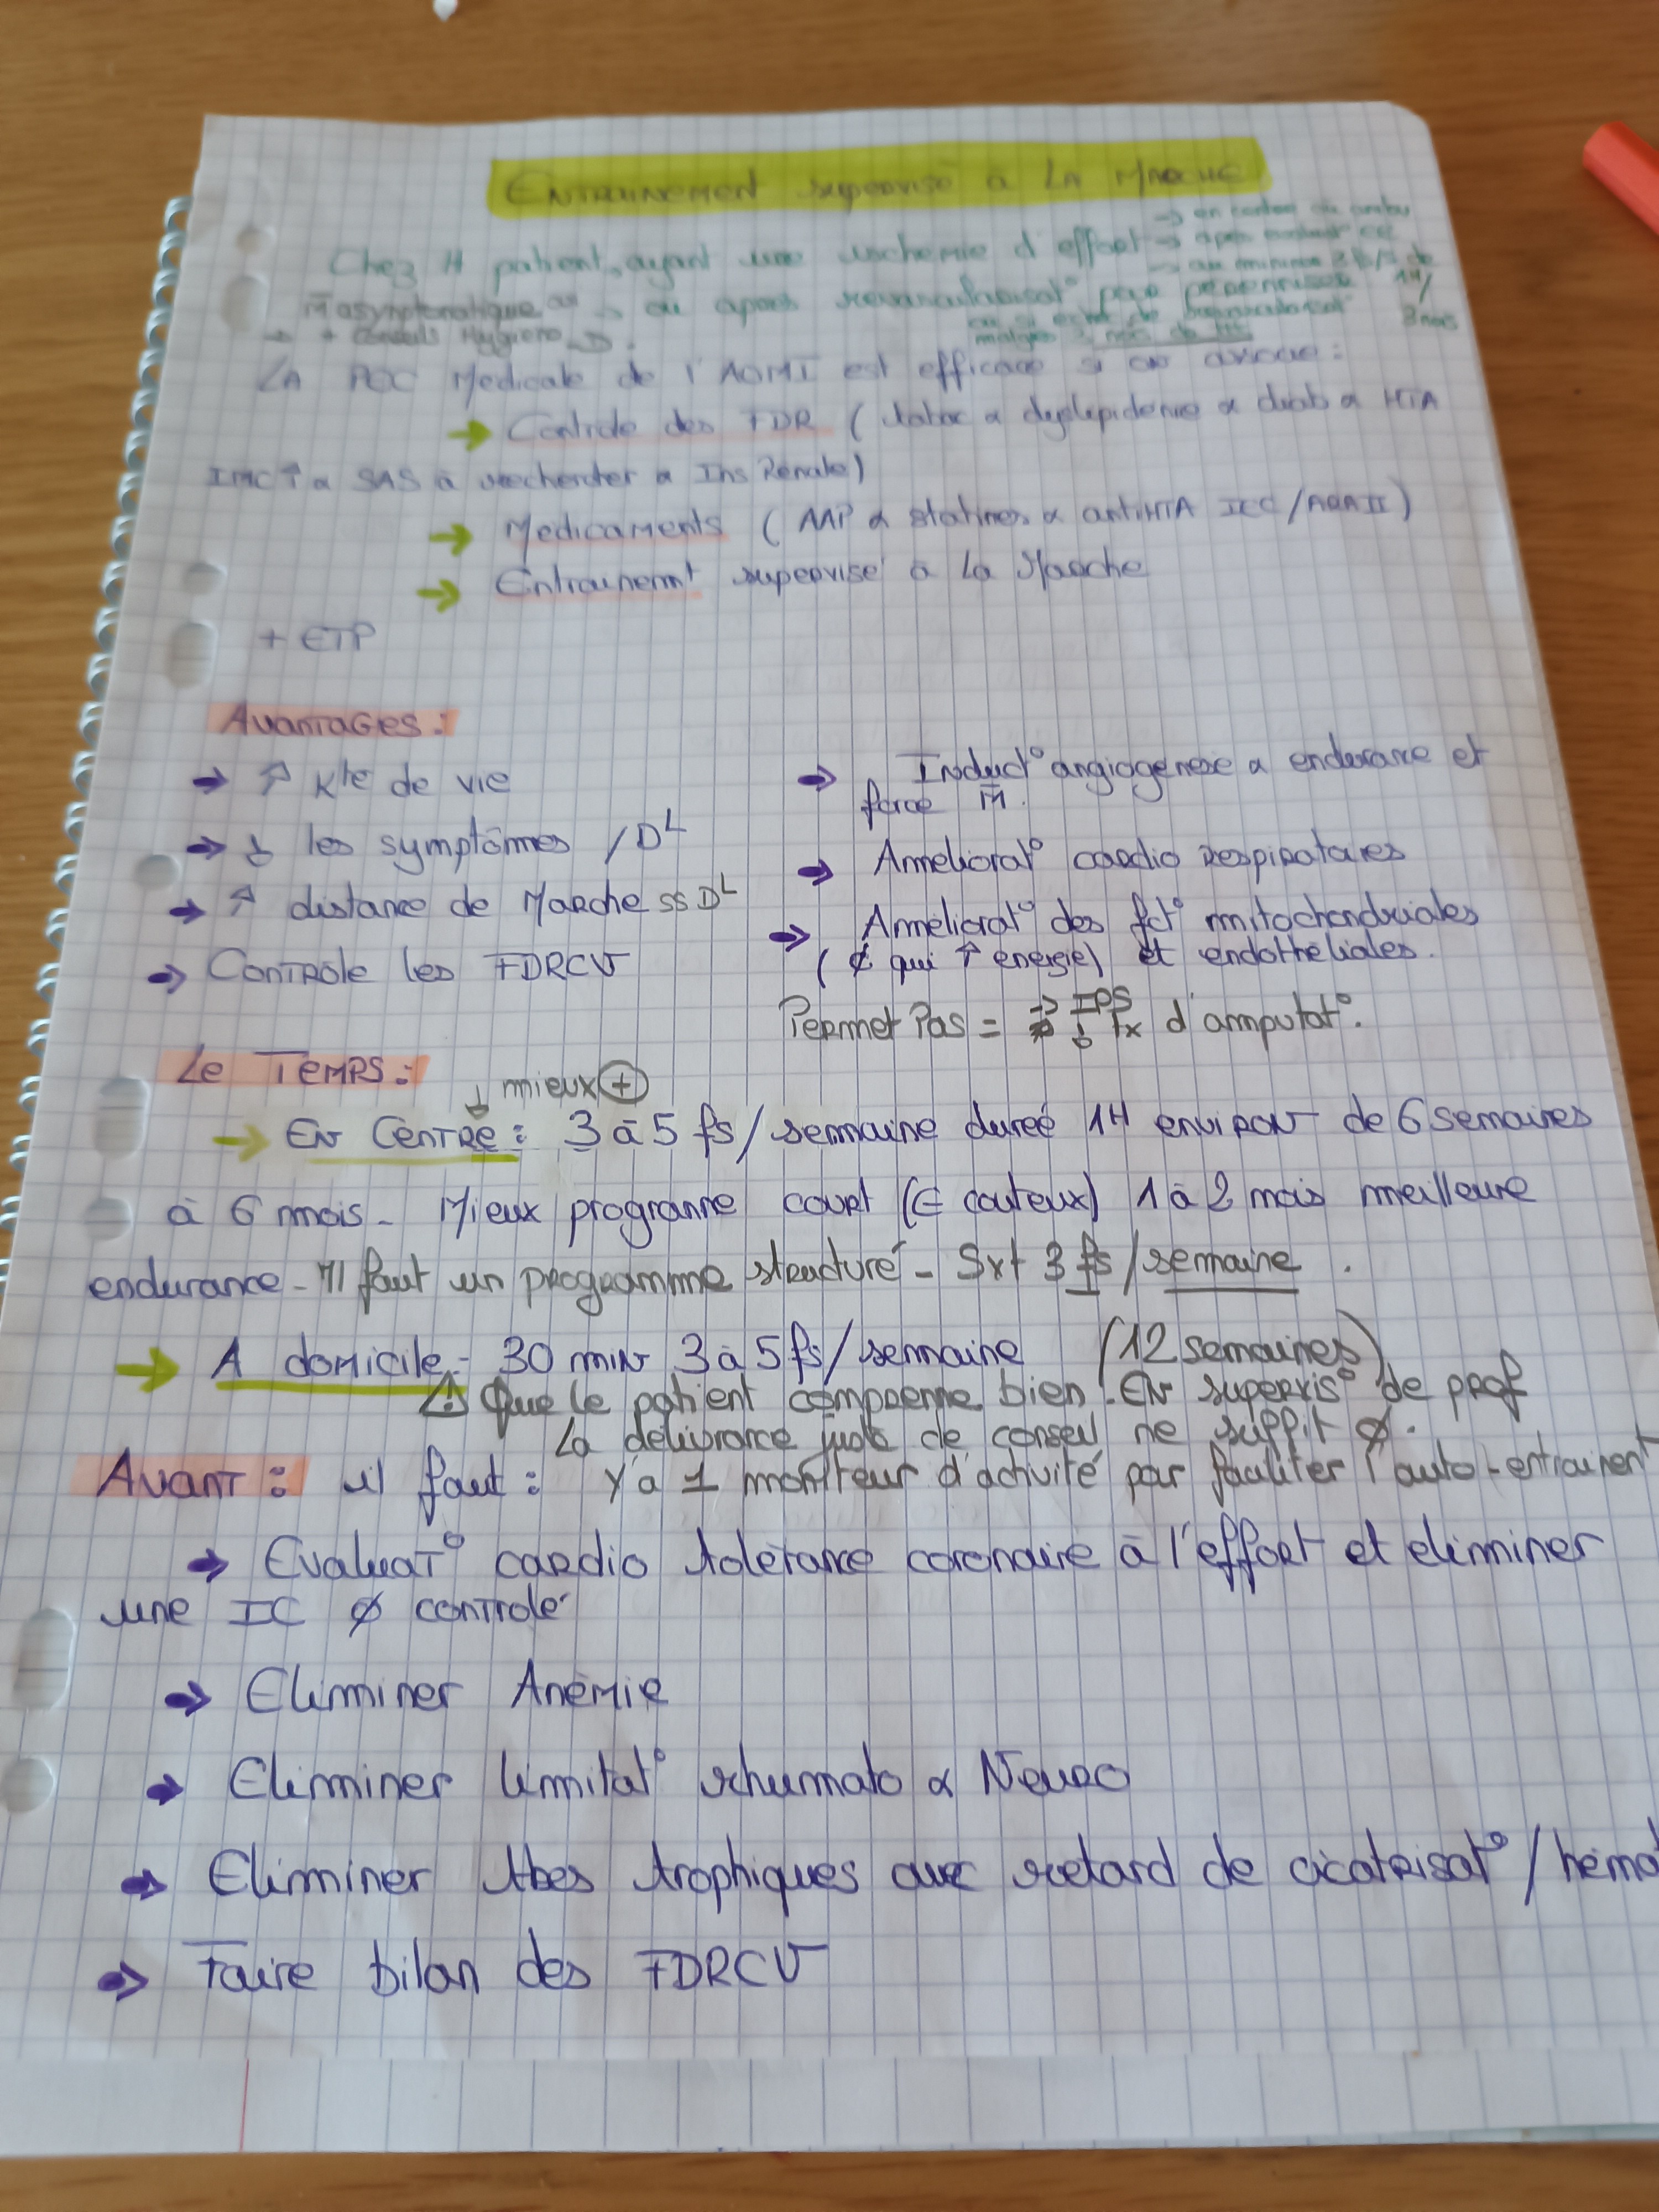 ENTRAINEMENT supervisé à LA MARCHE
→ en centre ou ambu
Chez tt patient, ayant une ischemie d'effort → après
→ au minimum 3 fs/s de 1H/
m̄ asymptomatique → ou après revascularisat° pour pérenniser 3 mois
ou si echec de revascularisat°
→ + conseils Hygieno-D. malgré 3 mois de ttt
LA PEC Medicale de l'AOMI est efficace si on associe :
→ Controle des FDR ( tabac α dyslepidemie α diab α HTA
IMC↑ α SAS à rechercher α Ins Rénale)
→ Medicaments ( AAP α statines α antiHTA IEC/ARAII )
→ Entrainemt supervisé à la Marche
+ ETP
AVANTAGES :
→ ↑ Kté de vie
→ ↓ les symptômes / DL
→ ↑ distance de Marche ss DL
→ CONTRÔLE les FDRCV
→ Induct° angiogenese α endurance et
force M̄.
→ Ameliorat° cardio respiratoires
→ Améliorat° des fct° mitochondriales
(¢ qui ↑ energie) et endothéliales.
Permet Pas = → IPS
↓ tx d'amputat°.
Le TEMPS :
↓ mieux ⊕
→ EN CENTRE : 3 à 5 fs/semaine dureé 1H environ de 6 semaines
à 6 mois - Mieux programme court (€ couteux) 1 à 2 mois meilleure
endurance - Il faut un programme structuré - Sxt 3 fs/semaine .
→ A domicile - 30 min 3 à 5 fs/semaine (12 semaines)
⚠ Que le patient comprenne bien. EN supervis° de prof
La délivrance juste de conseil ne suffit ø.
AVANT : il faut : y'a 1 moniteur d'activité par faciliter l'auto-entrainent
→ Evaluat° cardio tolérance coronaire à l'effort et eliminer
une IC ø controlé
→ Eliminer Anémie
→ Eliminer limitat° rhumato α Neuro
→ Eliminer tbes trophiques avec retard de cicatrisat° / hémat
→ Faire bilan des FDRCV